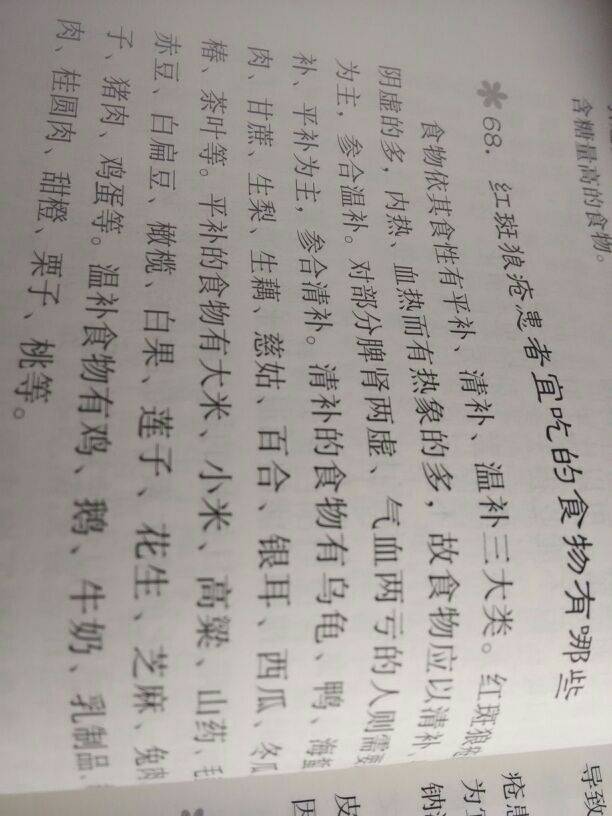 含糖量高的食物。
68. 红斑狼疮患者宜吃的食物有哪些
食物依其食性有平补、清补、温补三大类。红斑狼疮
阴虚的多，内热、血热而有热象的多，故食物应以清补、
为主，参合温补。对部分脾肾两虚、气血两亏的人则需要
补、平补为主，参合清补。清补的食物有乌龟、鸭、海蜇
肉、甘蔗、生梨、生藕、慈姑、百合、银耳、西瓜、冬瓜
椿、茶叶等。平补的食物有大米、小米、高粱、山药、毛
赤豆、白扁豆、橄榄、白果、莲子、花生、芝麻、兔肉
子、猪肉、鸡蛋等。温补食物有鸡、鹅、牛奶、乳制品、
肉、桂圆肉、甜橙、栗子、桃等。
导致
疮患
为
钠
皮
因